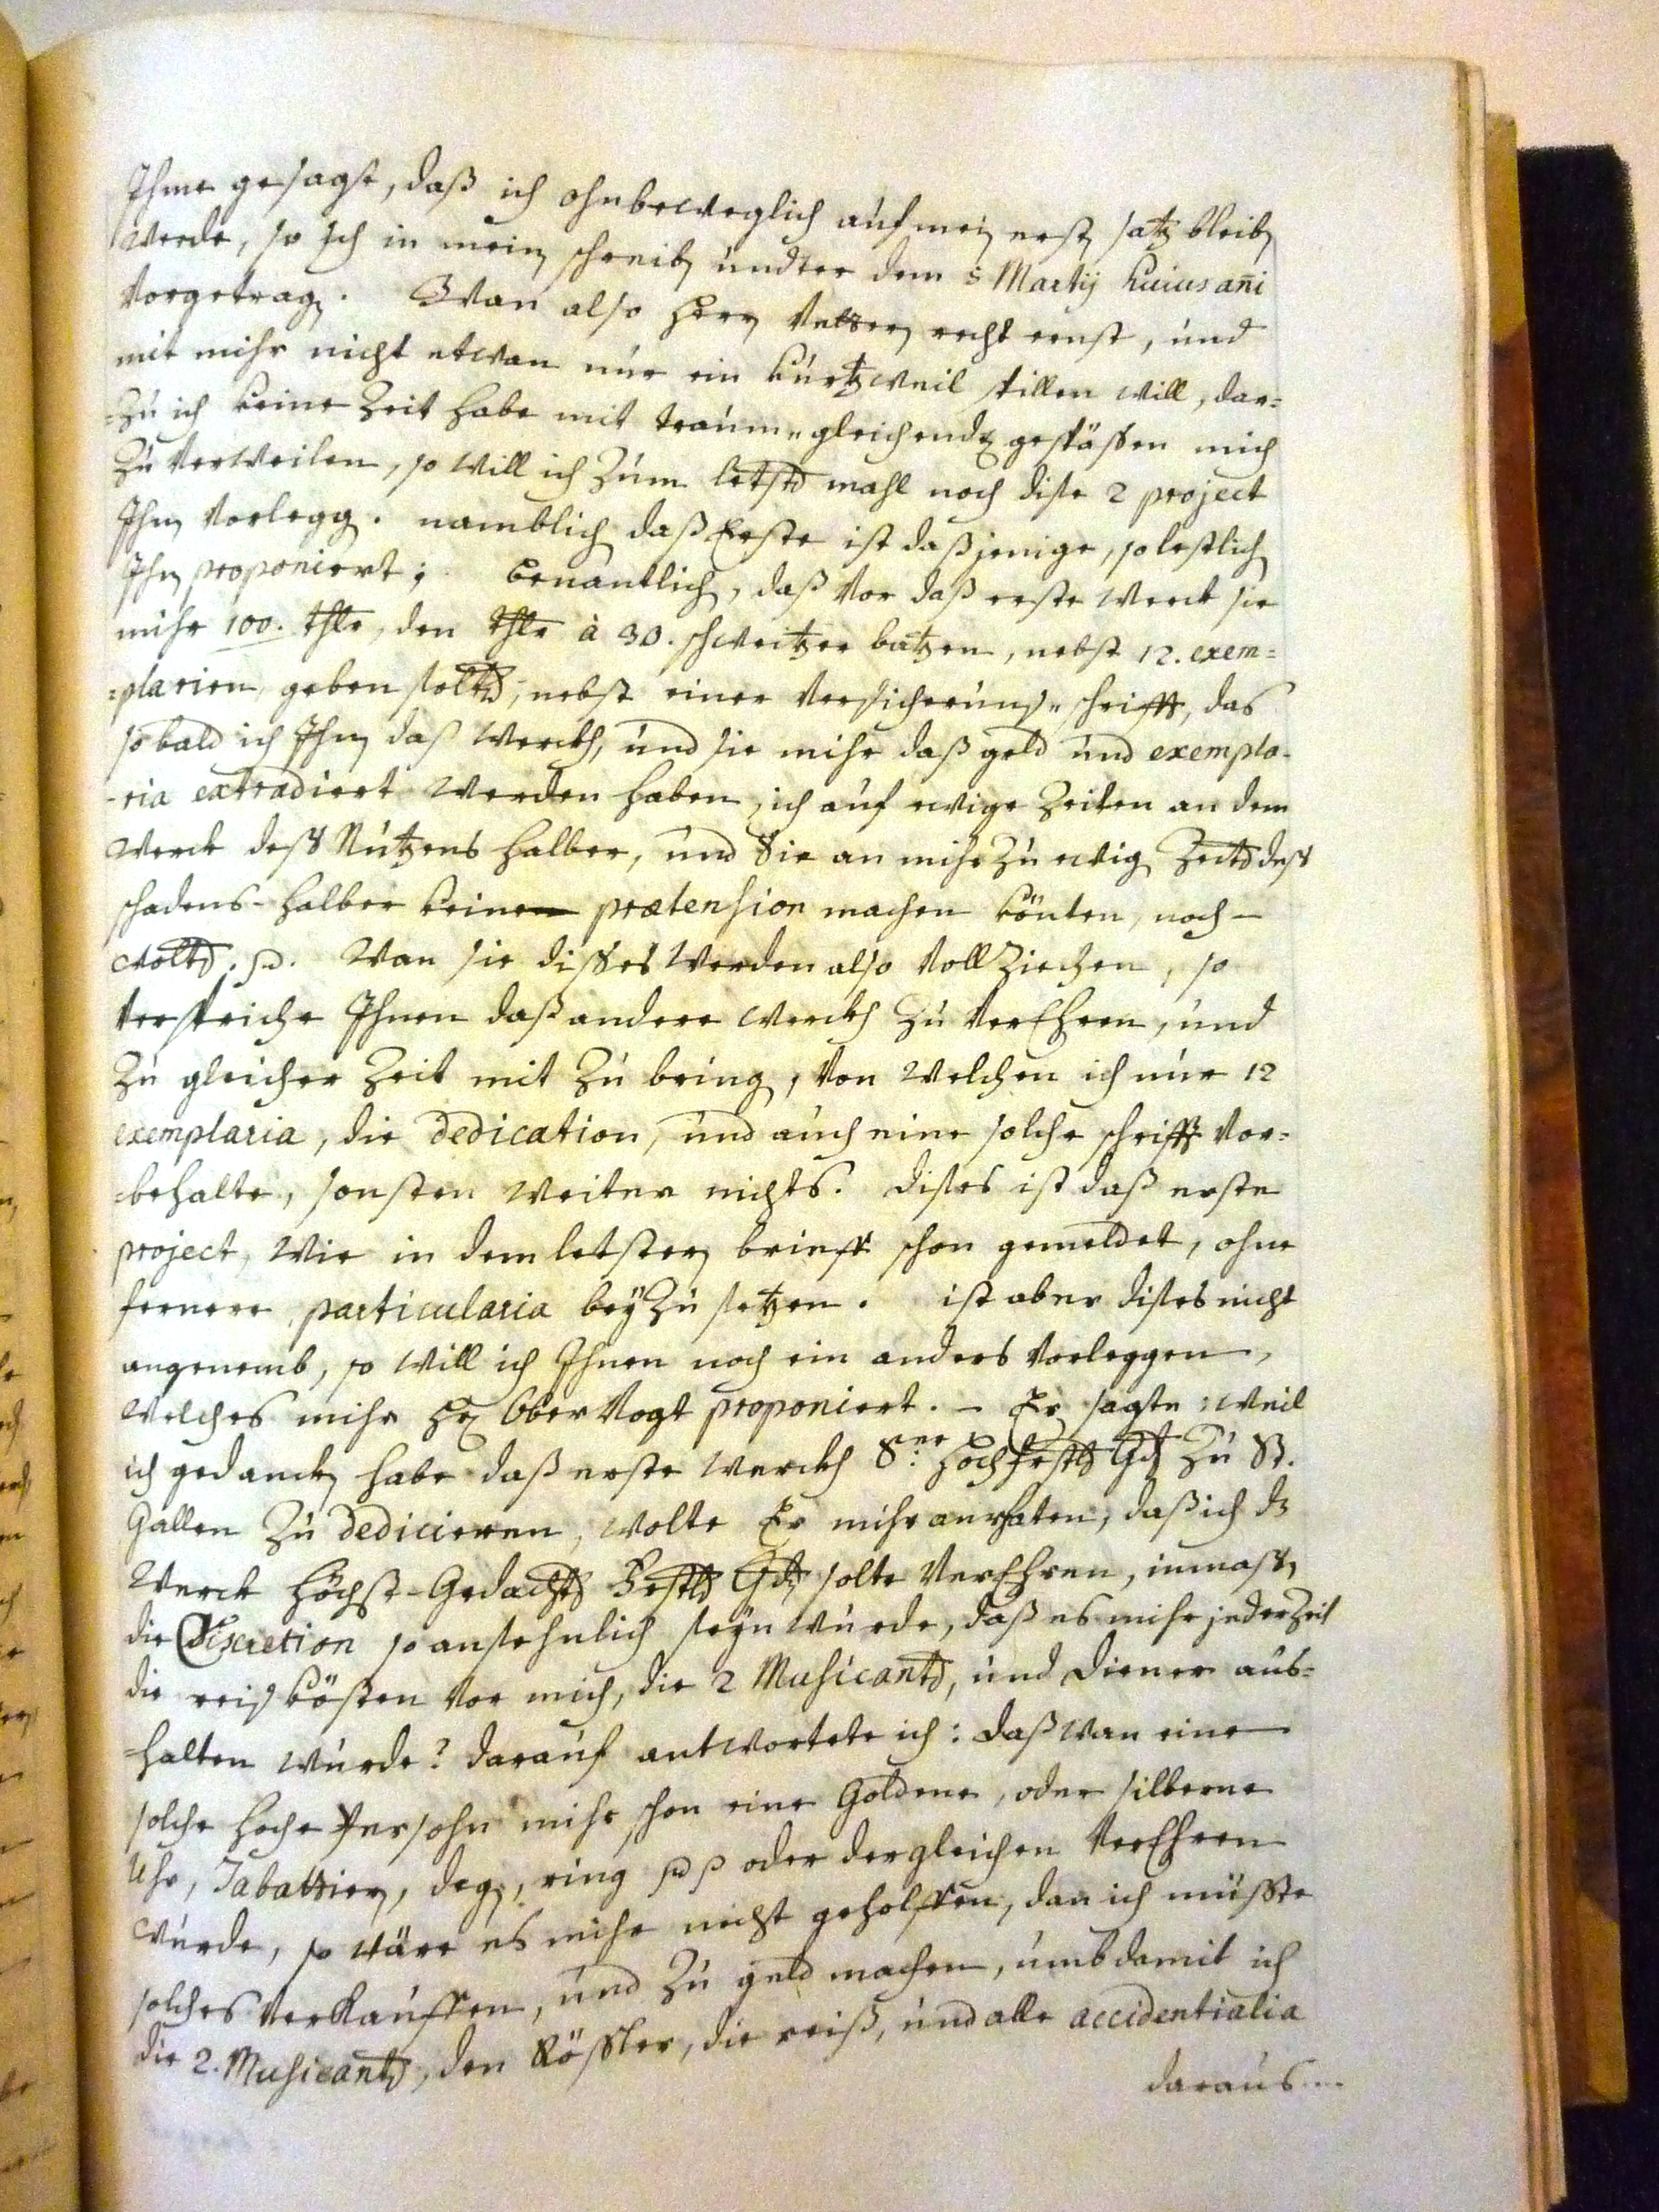 Ihme gesagt, daß ich ohnbeweglich auf mein erst satz bleiben
werde, so Ich in mein schreiben undter dem 5 Martij huius añi
vorgetragen. Wan also Herr Vetter recht ernst, und
mit mihr nicht etwan nur ein kurtzweil spillen will, dar=
=zu ich keine Zeit habe mit traum=gleichenden gespässen mich
zu verweilen, so will ich zum letsten mahl noch dise 2 project
Ihnen vorleggen. namblich daß Erste ist daßjenige, so lestlich
Ihnen proponiert; benantlich, daß vor daß erste Werck sie
mihr 100. thlr, den thlr à 30. schweitzer batzen, nebst 12. exem=
=plarien geben solten, nebst einer versicherungs=schrifft, das
so bald ich Ihnen daß Werckh, und sie mihr daß geld und exempla-
-ria extradiert werden haben, ich auf ewige Zeiten an dem
Werck dess Nutzens halber, und Sie an mihr zu ewigen Zeiten dess
schadens-halber keine prætension machen könten, noch
wolten. Wan sie disses werden also vollziechen, so
verspriche Ihnen daß andere Werckh zu verEhren, und
zu gleicher Zeit mit zu bringen, von welchen ich nur 12
exemplaria, die dedication, und auch eine solche schrifft vor=
=behalte, sonsten weiter nichts. dises ist daß erste
project, wie in dem letsten brieff schon gemeldet, ohne
fernere particularia beyzusetzen. ist aber dises nicht
angenemb, so will ich Ihnen noch ein anders vorleggen,
welches mihr Hr Obervogt proponiert. - Er sagte: weil
ich gedancken habe daß erste Werckh Sr. Hochfrstl Gdn zu St.
Gallen zu dediciren, wolte Er mihr anrhaten, daß ich dz
Werck höchst-Gedachts Frstl Gdn solte verEhren, inmassen
die Discretion so ansehnlich seyn wurde, daß es mihr jederzeit
die reiskösten vor mich, die 2 Musicanten, und diener aus=
=halten wurde? darauf antwortete ich: daß wan eine
solche hoche Persohn mihr schon eine Goldene, oder silberne
Uhr, Tabattieren, degen, ring oder dergleichen verEhren
wurde, so wäre es mihr nicht geholffen, dan ich müsste
solches verkauffen, und zu geld machen, umb damit ich
die 2. Musicanten, den Rössler, die reiß, und alle accidentialia
daraus...